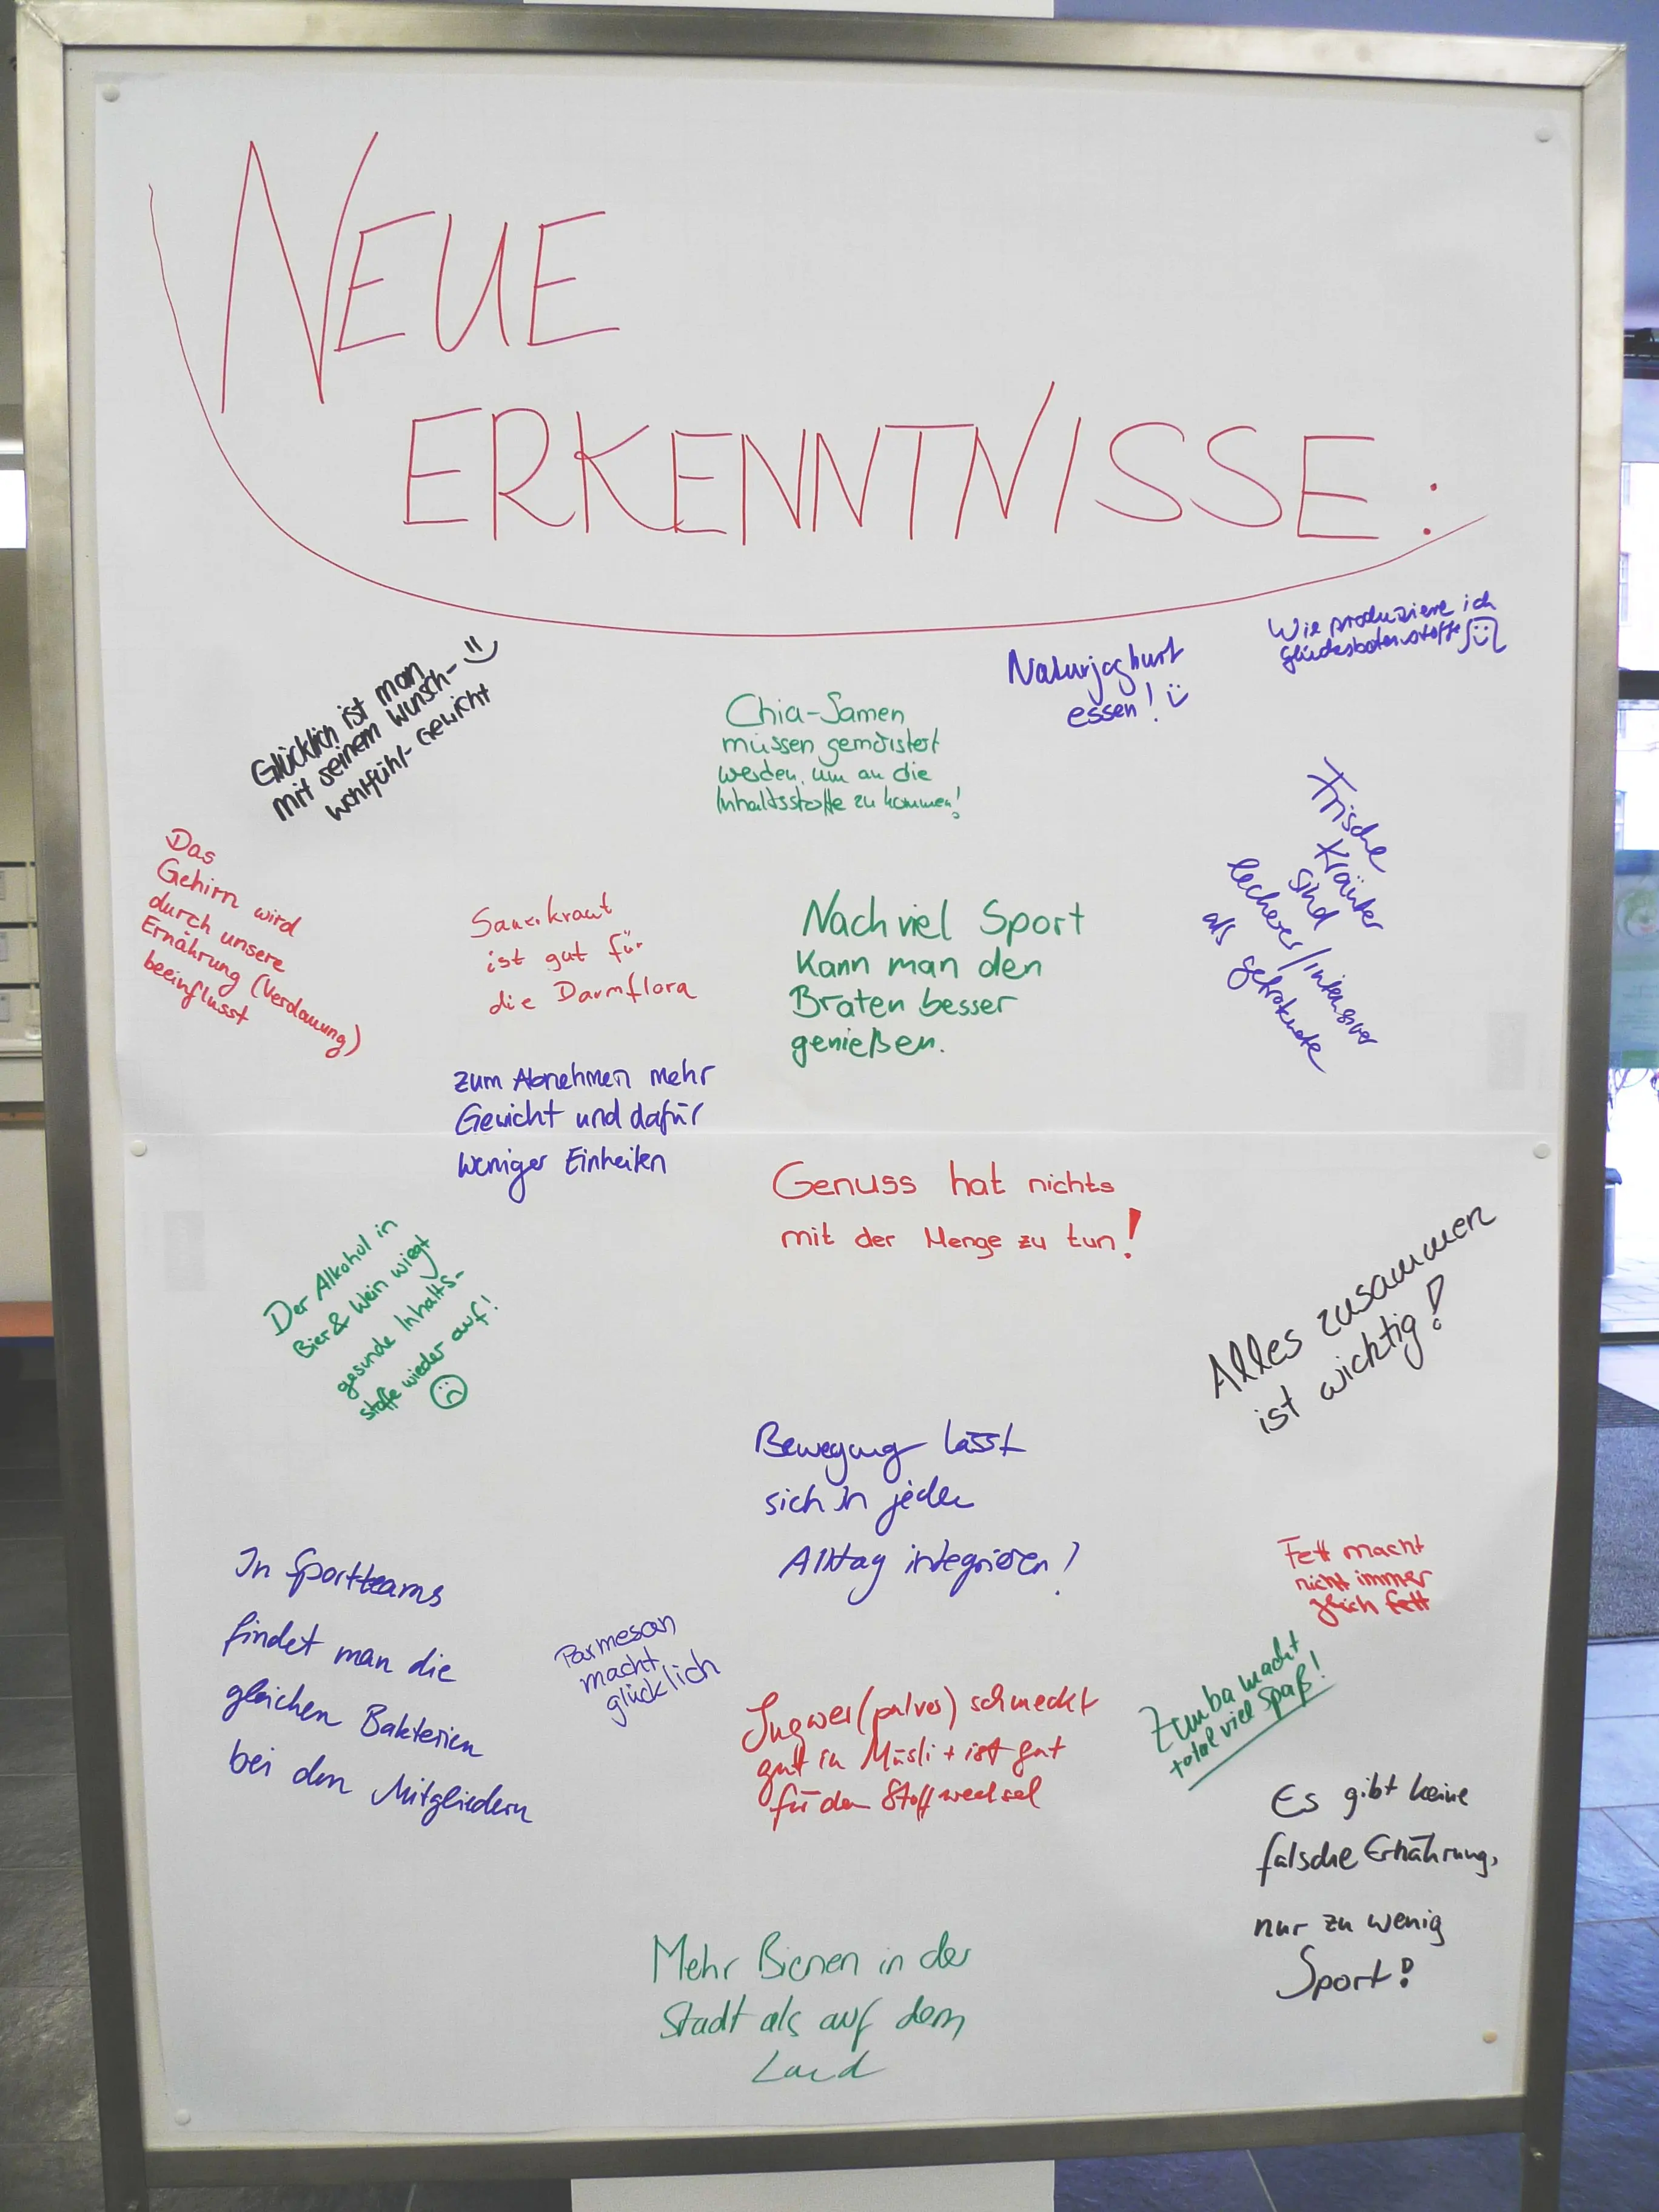 NEUE
ERKENNTNISSE:
Glücklich ist man
mit seinem Wunsch-
wohlfühl-Gewicht
Chia-Samen
müssen gemörstert
werden, um an die
Inhaltsstoffe zu kommen!
Naturjoghurt
essen!
Wie produziere ich
Glücksbotenstoffe
Das
Gehirn wird
durch unsere
Ernährung (Verdauung)
beeinflusst
Sauerkraut
ist gut für
die Darmflora
Nach viel Sport
kann man den
Braten besser
genießen.
Frische
Kräuter
sind
leckerer/intensiver
als getroknete
zum Abnehmen mehr
Gewicht und dafür
weniger Einheiten
Genuss hat nichts
mit der Menge zu tun!
Der Alkohol in
Bier & Wein wiegt
gesunde Inhalts-
stoffe wieder auf!
Alles zusammen
ist wichtig!
Bewegung lässt
sich in jeden
Alltag integrieren!
In Sportteams
findet man die
gleichen Bakterien
bei den Mitgliedern
Parmesan
macht
glücklich
Fett macht
nicht immer
gleich fett
Ingwer(pulver) schmeckt
gut in Müsli + ist gut
für den Stoffwechsel
Zumba macht
total viel Spaß!
Es gibt keine
falsche Ernährung,
nur zu wenig
Sport!
Mehr Bienen in der
Stadt als auf dem
Land